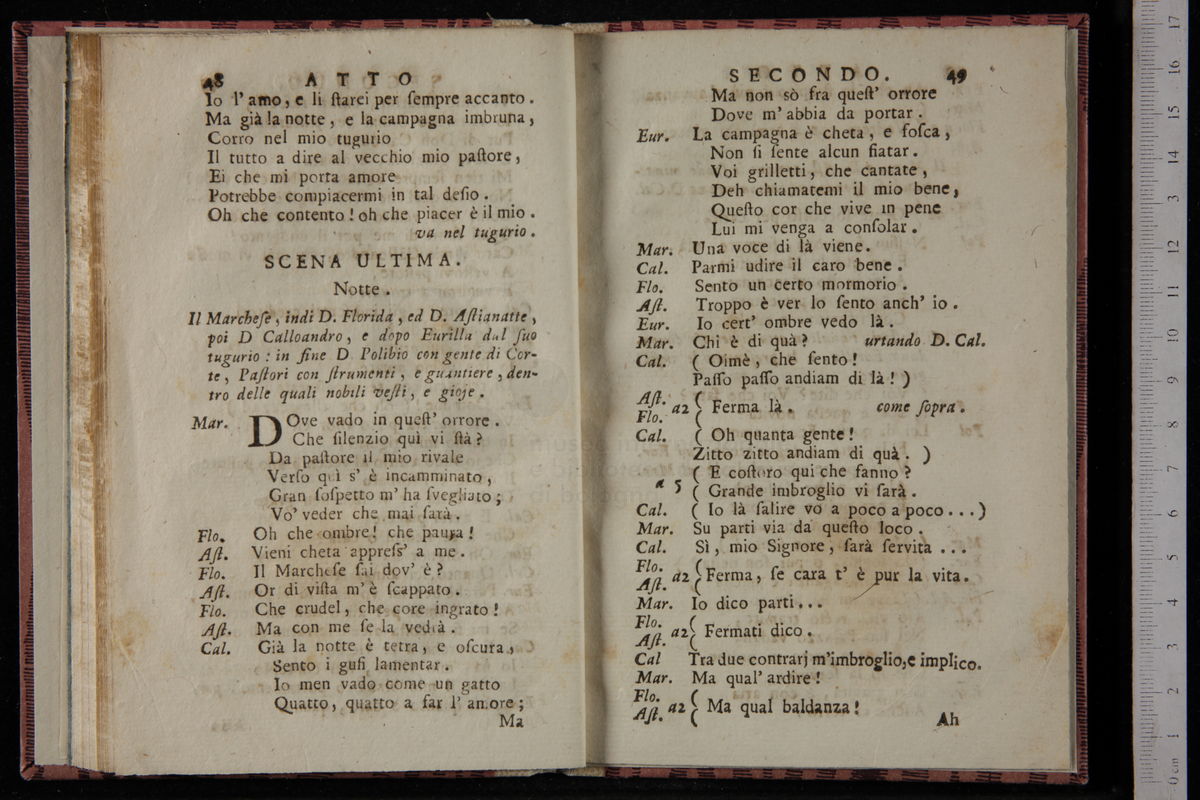 48 ATTO
Io l'amo, e li ſtarei per ſempre accanto.
Ma già la notte, e la campagna imbruna,
Corro nel mio tugurio
Il tutto a dire al vecchio mio paſtore,
Ei che mi porta amore
Potrebbe compiacermi in tal deſio.
Oh che contento! oh che piacer è il mio.
va nel tugurio.
SCENA ULTIMA.
Notte.
Il Marcheſe, indi D. Florida, ed D. Aſtianatte,
poi D Calloandro, e dopo Eurilla dal ſuo
tugurio: in fine D. Polibio con gente di Cor-
te, Paſtori con ſtrumenti, e guantiere, den-
tro delle quali nobili veſti, e gioje.
Mar. DOve vado in queſt' orrore.
Che ſilenzio quì vi ſtà?
Da paſtore il mio rivale
Verſo quì s' è incamminato,
Gran ſoſpetto m' ha ſvegliato;
Vo' veder che mai ſarà.
Flo. Oh che ombre! che paura!
Aſt. Vieni cheta appreſs' a me.
Flo. Il Marcheſe ſai dov' è?
Aſt. Or di viſta m' è ſcappato.
Flo. Che crudel, che core ingrato!
Aſt. Ma con me ſe la vedrà.
Cal. Già la notte è tetra, e oſcura,
Sento i gufi lamentar.
Io men vado come un gatto
Quatto, quatto a far l' amore;
Ma
SECONDO. 49
Ma non sò fra queſt' orrore
Dove m' abbia da portar.
Eur. La campagna è cheta, e foſca,
Non ſi ſente alcun fiatar.
Voi grilletti, che cantate,
Deh chiamatemi il mio bene,
Queſto cor che vive in pene
Lui mi venga a conſolar.
Mar. Una voce di là viene.
Cal. Parmi udire il caro bene.
Flo. Sento un certo mormorio.
Aſt. Troppo è ver lo ſento anch' io.
Eur. Io cert' ombre vedo là.
Mar. Chi è di quà? urtando D. Cal.
Cal. ( Oimè, che ſento!
Paſſo paſſo andiam di là! )
Aſt. Flo. a2 ( Ferma là. come ſopra.
Cal. ( Oh quanta gente!
Zitto zitto andiam di quà. )
a 5 ( E coſtoro qui che fanno?
( Grande imbroglio vi ſarà.
Cal. ( Io là ſalire vo a poco a poco...)
Mar. Su parti via da queſto loco.
Cal. Sì, mio Signore, ſarà ſervita...
Flo. Aſt. a2 ( Ferma, ſe cara t' è pur la vita.
Mar. Io dico parti...
Flo. Aſt. a2 ( Fermati dico.
Cal Tra due contrarj m'imbroglio, e implico.
Mar. Ma qual' ardire!
Flo. Aſt. a2 ( Ma qual baldanza!
Ah